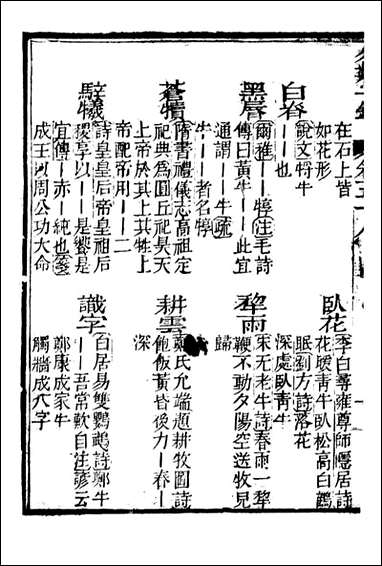 在石上皆
如花形
臥花
李白尋雍尊師隱居詩
花暖青牛臥松高白鶴
眠劉方詩落花
深處臥青牛
白脊
說文㹁牛
——也
黑脣
爾雅——犉注毛詩
傳曰黃牛——此宜
通謂——牛疏
牛——者名犉
犂雨
宋无老牛詩春雨一犂
鞭不動夕陽空送牧兒
歸
蒼犢
隋書禮儀志高祖定
祀典爲圜丘祀昊天
上帝於其上其牲上
帝配帝用——二
耕雲
鄭氏允端題耕牧圖詩
飽飯黃昏後力—春—
深
騂犧
詩皇皇后帝皇祖后
稷享以——是饗是
宜傳—赤—純也箋
成王以周公功大命
識字
白居易雙鸚鵡詩鄭牛
——吾常歎自注諺云
鄭康成家牛
觸牆成八字